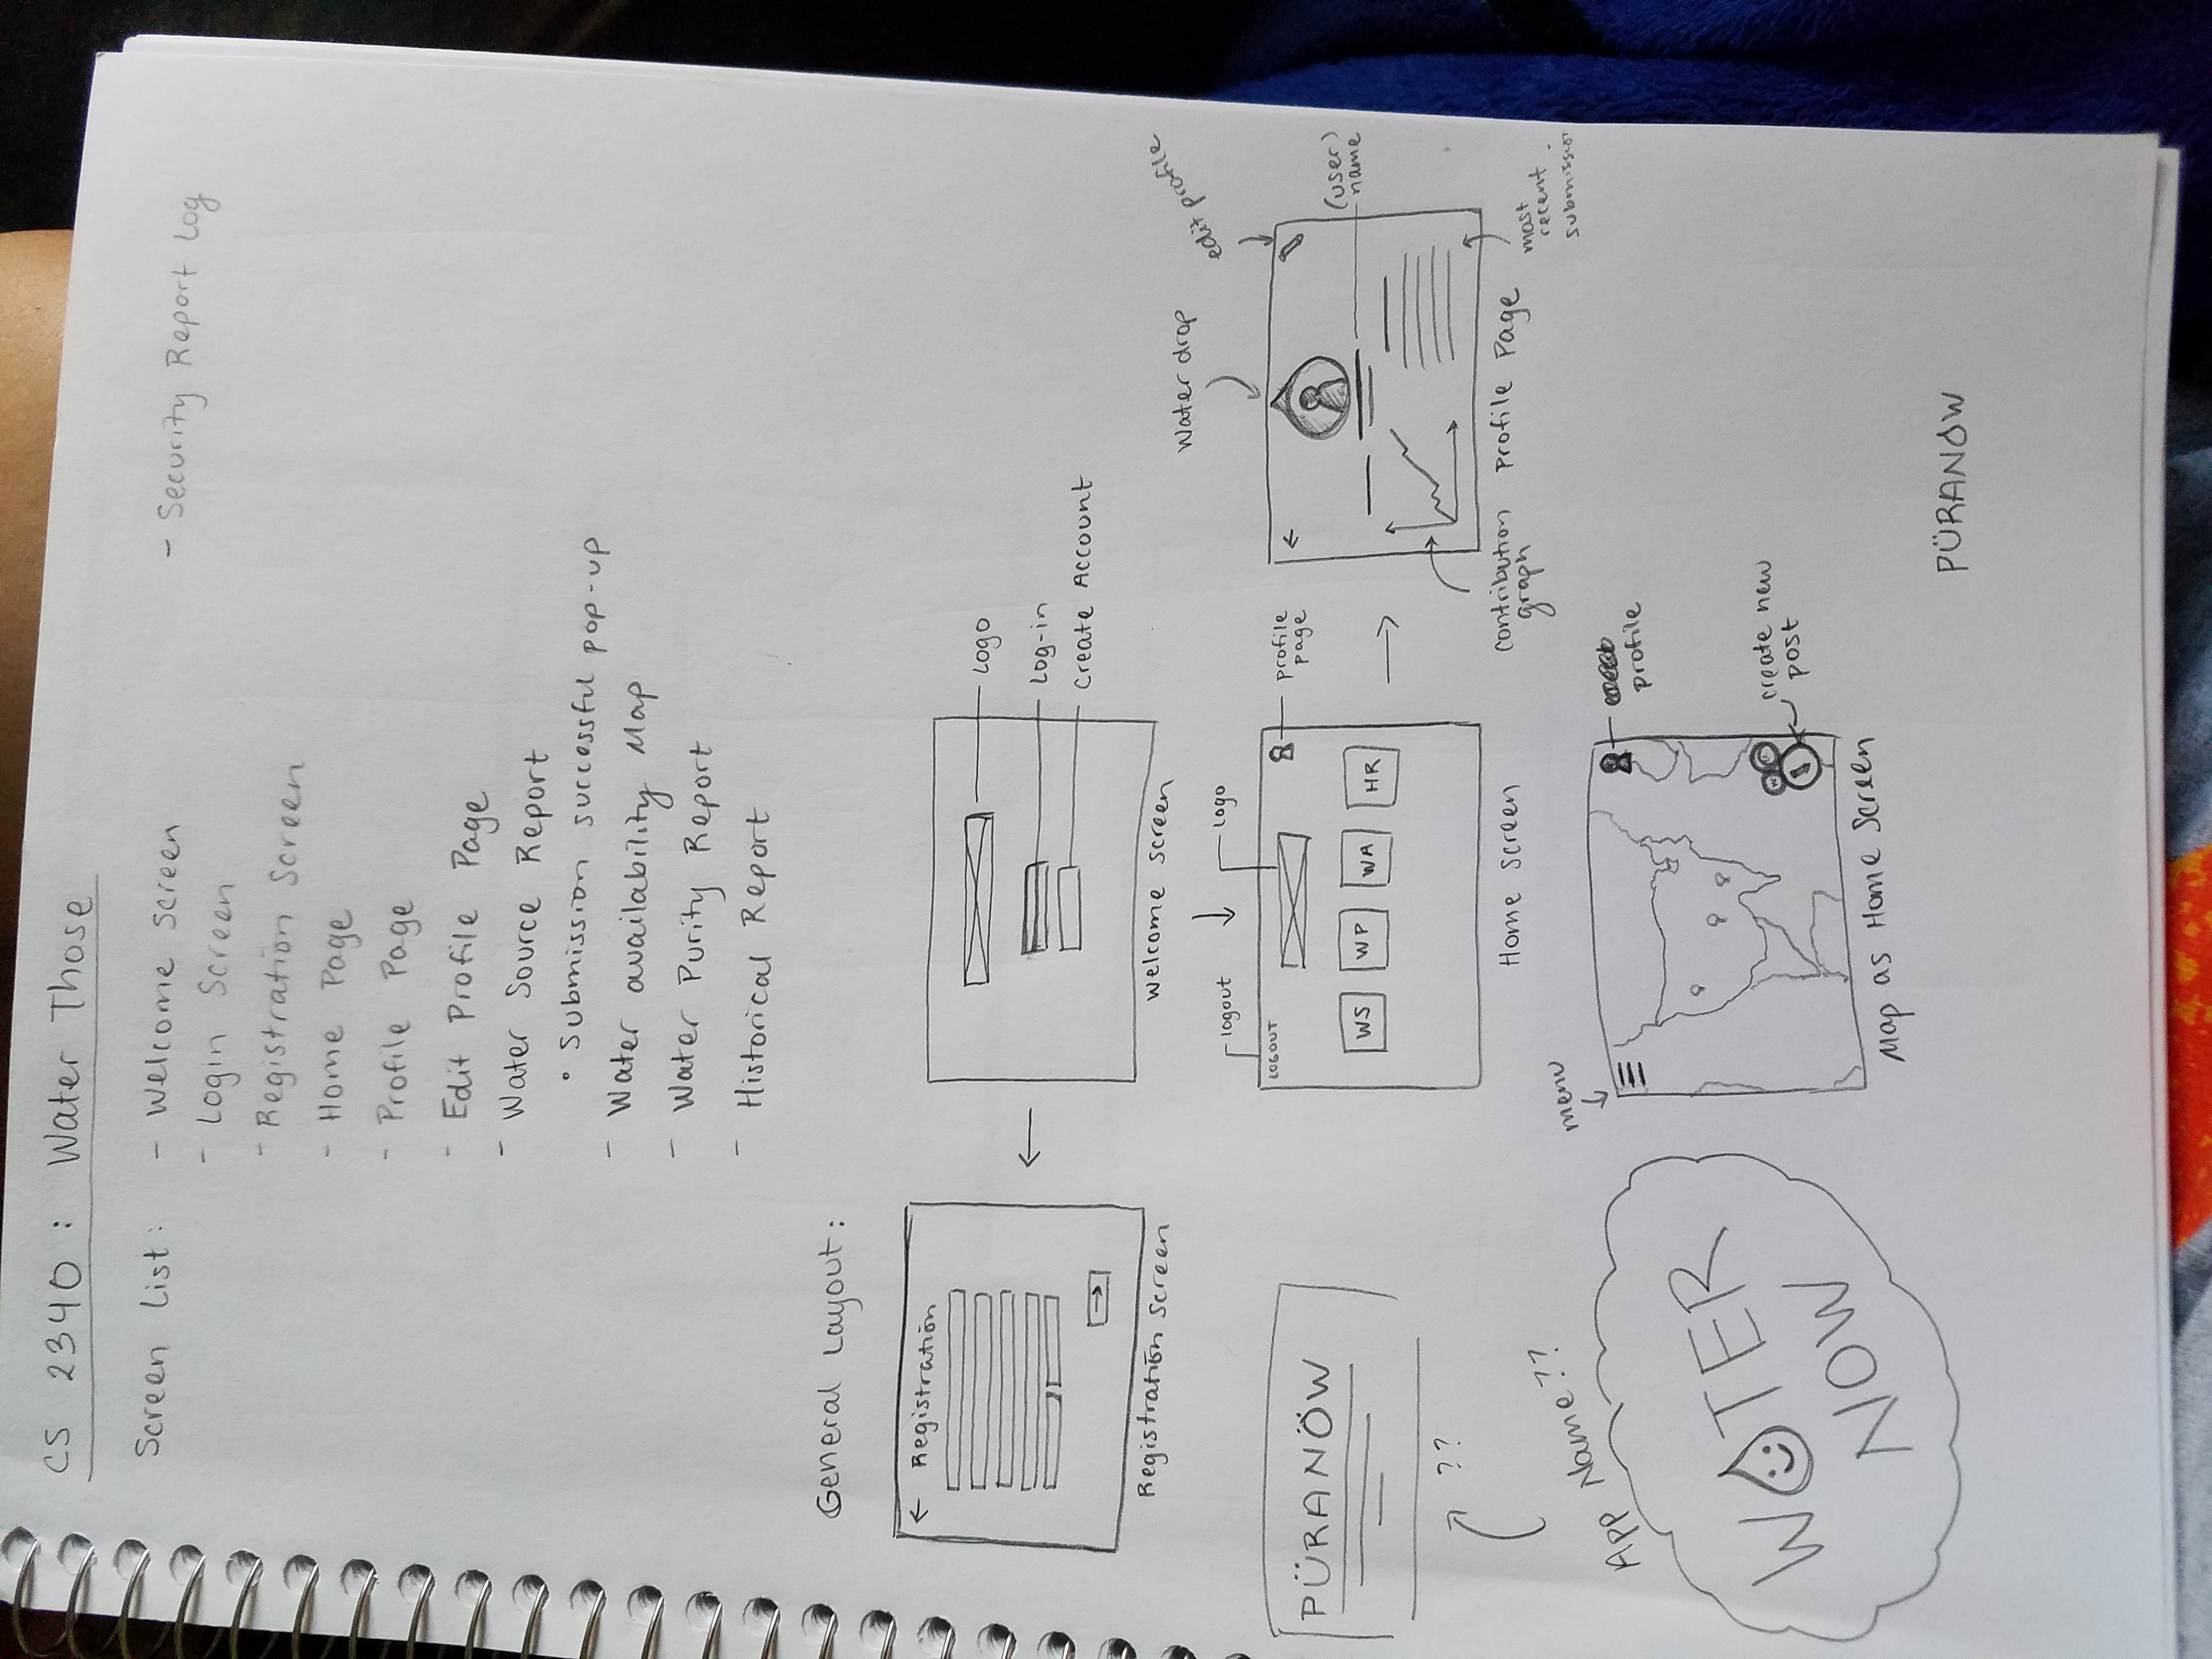 CS 2340: Water Those
Screen List:
- Welcome screen
- Login Screen
- Registration Screen
- Home Page
- Profile Page
- Edit Profile Page
- Water Source Report
• Submission successful pop-up
- Water availability Map
- Water Purity Report
- Historical Report
- Security Report Log
General Layout:
← Registration
→
Registration Screen
←
Logo
Log-in
Create Account
Welcome Screen
PÜRANÖW
??
logout
↓
Logo
LOGOUT
profile page
WS WP WA HR
Home Screen
→
Water drop
edit profile
←
(user) name
contribution graph
most recent submission
Profile Page
App Name??
WATER
NOW
menu
profile
create new post
Map as Home Screen
PÜRANOW